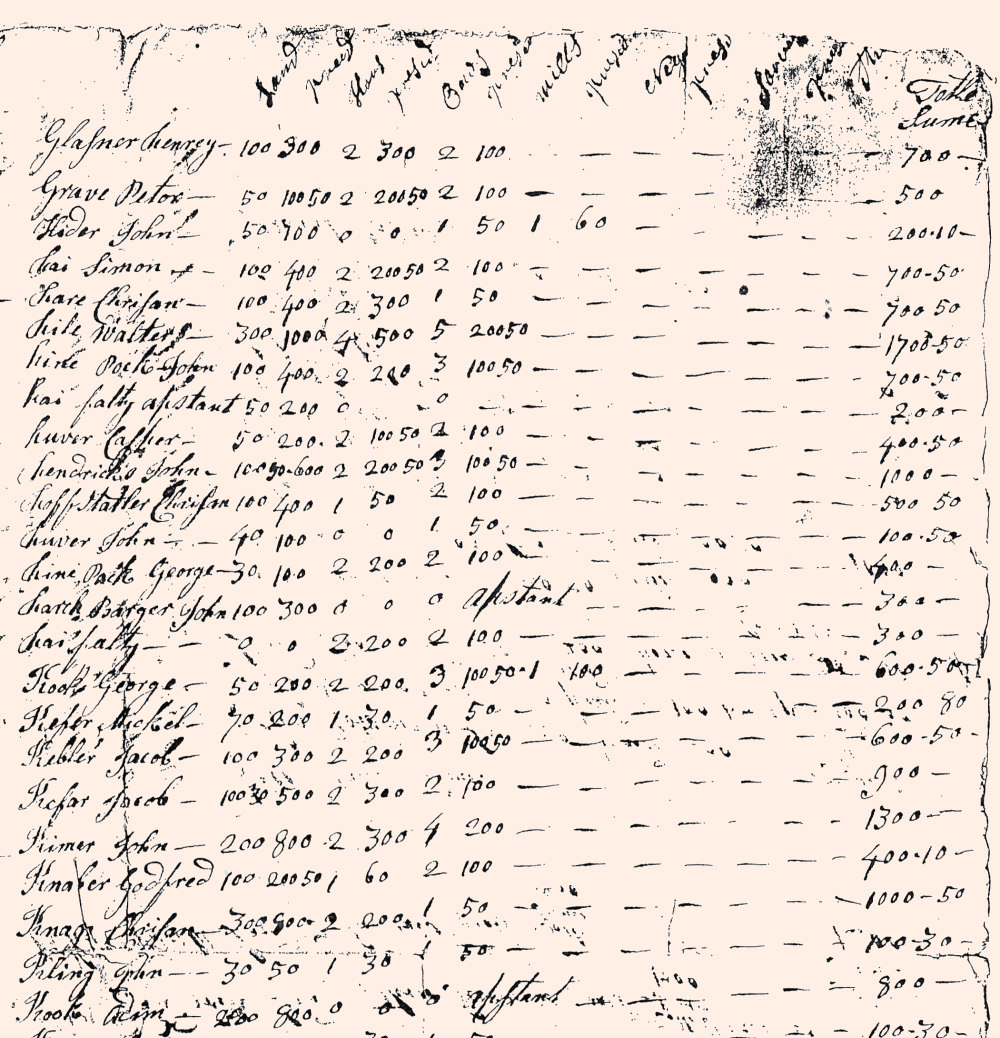 Land priced Hors prised Cows prised mills prised Negr prised
Totle
Sume
Glasner henrey - 100 300 2 300 2 100 — — — — — 700 —
Grave Peter — 50 100 50 2 200 50 2 100 — — — — — 500
Hider John — 50 100 0 0 1 50 1 60 — — — — — 200-10 —
hai Simon — 100 400 2 200 50 2 100 — — — — — — 700-50
hare Chrisan — 100 400 2 300 1 50 — — — — — — 700 50
hile Walters — 300 1000 4 500 5 200 50 — — — — — — 1700-50
hine Pock John 100 400 2 200 3 100 50 — — — — — — 700-50
hai falty apstant 50 200 0 0 — — — — — — 200 —
huver Casper — 50 200 2 100 50 2 100 — — — — — — 400-50
hendricks John — 100 50-600 2 200 50 3 100 50 — — — — — — 1000 —
hoffstatler Chrisan 100 400 1 50 2 100 — — — — — — 500 50
huver John — — 40 100 0 0 1 50 — — — — — — 100-50
hine Pack George — 30 100 2 200 2 100 — — — — — — 400 —
harch Barger John 100 300 0 0 0 apstant — — — — — 300 —
hai falty — — 0 0 2 200 2 100 — — — — — — 300 —
Kook George — 50 200 2 200 3 100 50-1 100 — — — — — 600-50
Kefer Mickel — 70 200 1 30 1 50 — — — — — — 200 80
Kebler Jacob — 100 300 2 200 3 100 50 — — — — — — 600-50 -
Kefar Jacob — 100 30 500 2 300 2 100 — — — — — — 900 —
Kimer John — 200 800 2 300 4 200 — — — — — — 1300 —
Knaber Godfred 100 200 50 1 60 2 100 — — — — — — 400-10 —
Knage Chrisan — 300 800 2 200 1 50 — — — — — — 1000-50
Kling John — — 30 50 1 30 1 50 — — — — — — 100-30 —
Kook Adim — 200 800 0 0 0 apstant — — — — — 800 —
100-30 —